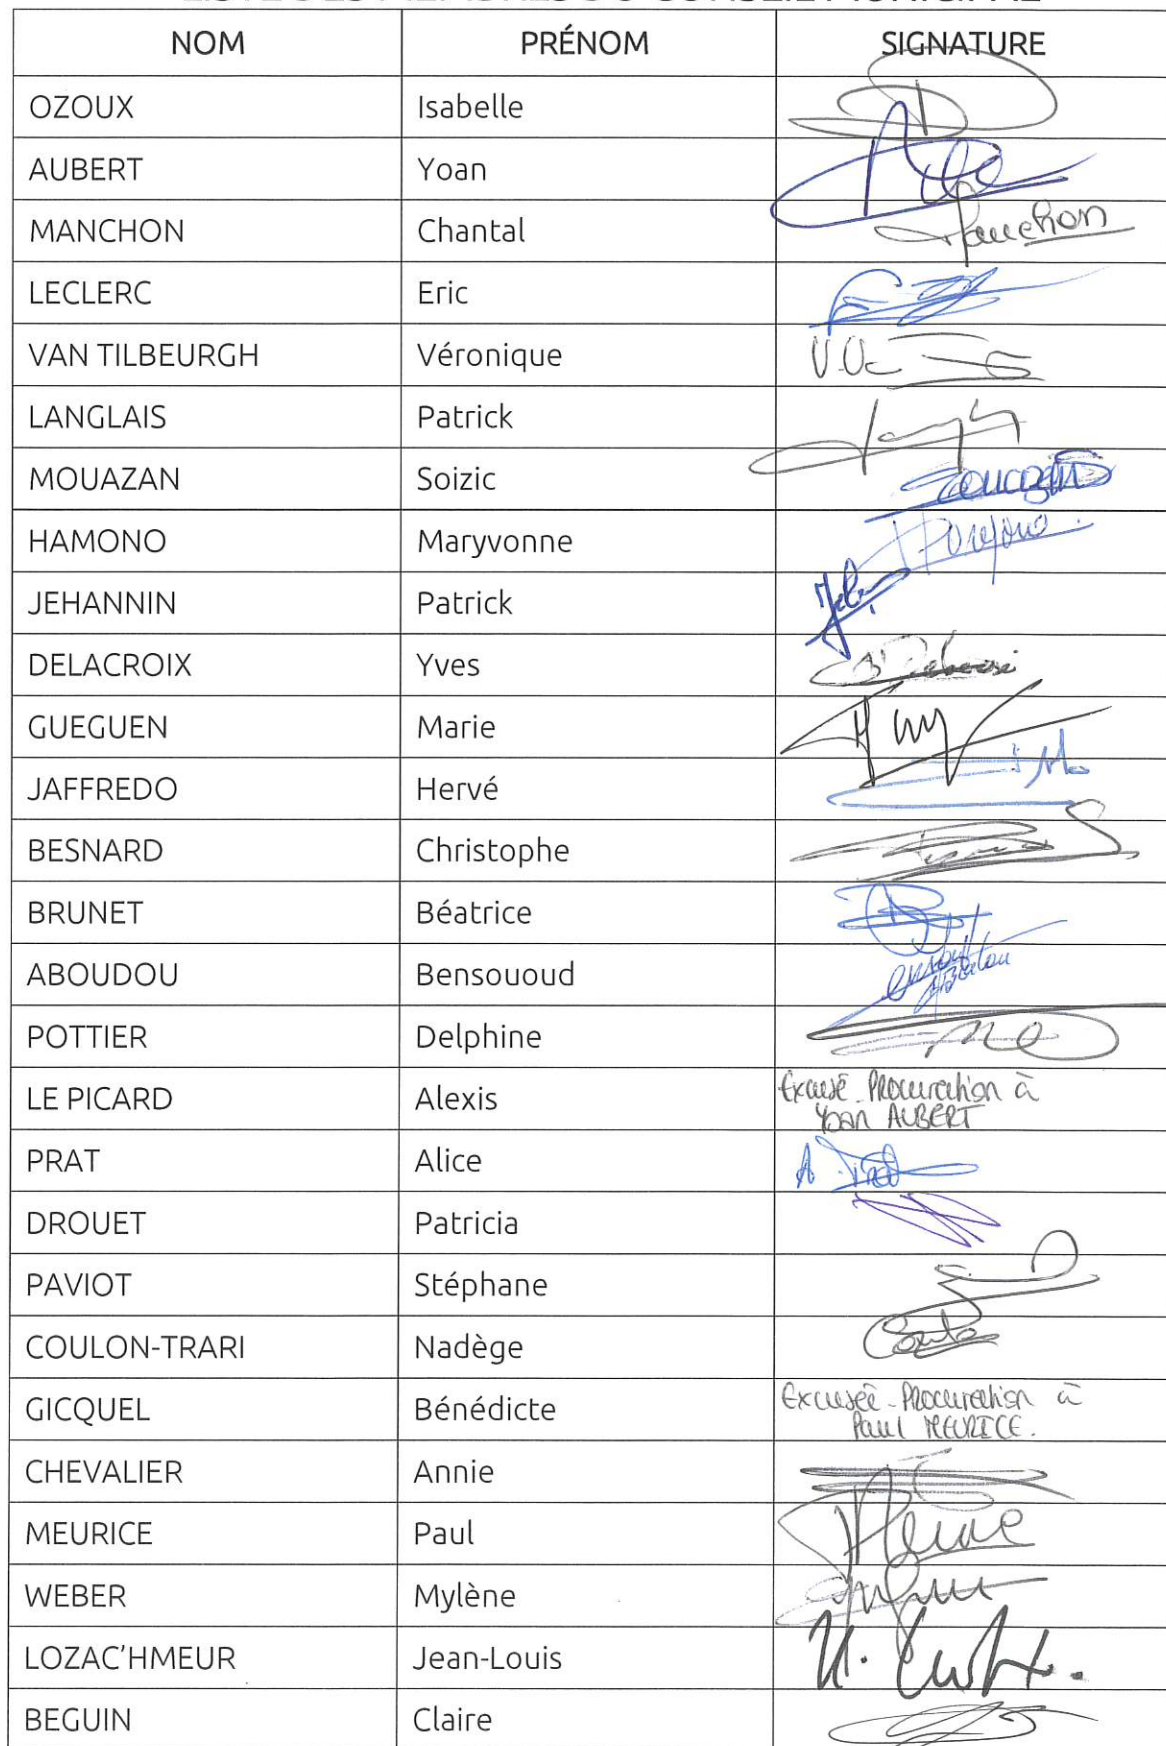 LISTE DES MEMBRES DU CONSEIL MUNICIPAL
NOM PRÉNOM SIGNATURE
OZOUX Isabelle
AUBERT Yoan
MANCHON Chantal Manchon
LECLERC Eric
VAN TILBEURGH Véronique
LANGLAIS Patrick
MOUAZAN Soizic
HAMONO Maryvonne
JEHANNIN Patrick
DELACROIX Yves
GUEGUEN Marie
JAFFREDO Hervé
BESNARD Christophe
BRUNET Béatrice
ABOUDOU Bensououd
POTTIER Delphine
LE PICARD Alexis Excusé - Procuration à
Yoan AUBERT
PRAT Alice A. Prat
DROUET Patricia
PAVIOT Stéphane
COULON-TRARI Nadège
GICQUEL Bénédicte Excusée - Procuration à
Paul MEURICE.
CHEVALIER Annie
MEURICE Paul
WEBER Mylène
LOZAC'HMEUR Jean-Louis
BEGUIN Claire